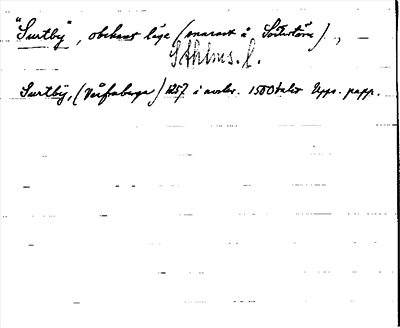 "Surtby", obekant läge (snarast å Södertörn).,
Sthlms. l.
Surtby, (Vårfruberga) 1257 i avskr. 1500talet Upps. papp.